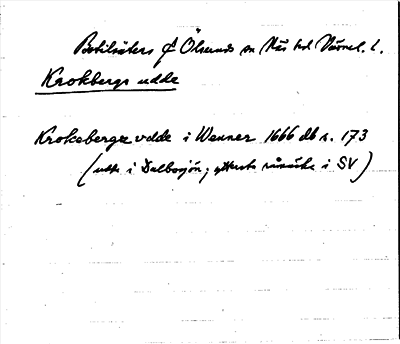 Botilsäters o Ölseruds sn Näs hd Värml. l.
Krokbergs udde
Krokeberge vdde i Wenner 1666 db s. 173
(udde i Dalbosjön; ytterst i SV)